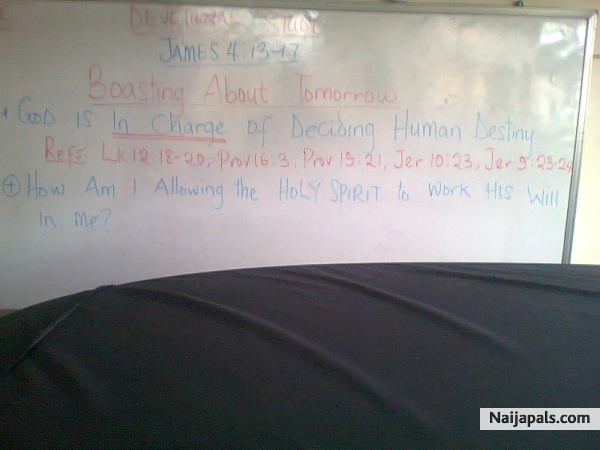 DEVOTIONAL STUDY
JAMES 4:13-17
Boasting About Tomorrow
GOD IS In Charge of Deciding Human Destiny
Refs: Lk 12:18-20, Prov 16:3, Prov 19:21, Jer 10:23, Jer 9:23-24
+ How Am I Allowing the HOLY SPIRIT to Work HIS Will
in me?
Naijapals.com